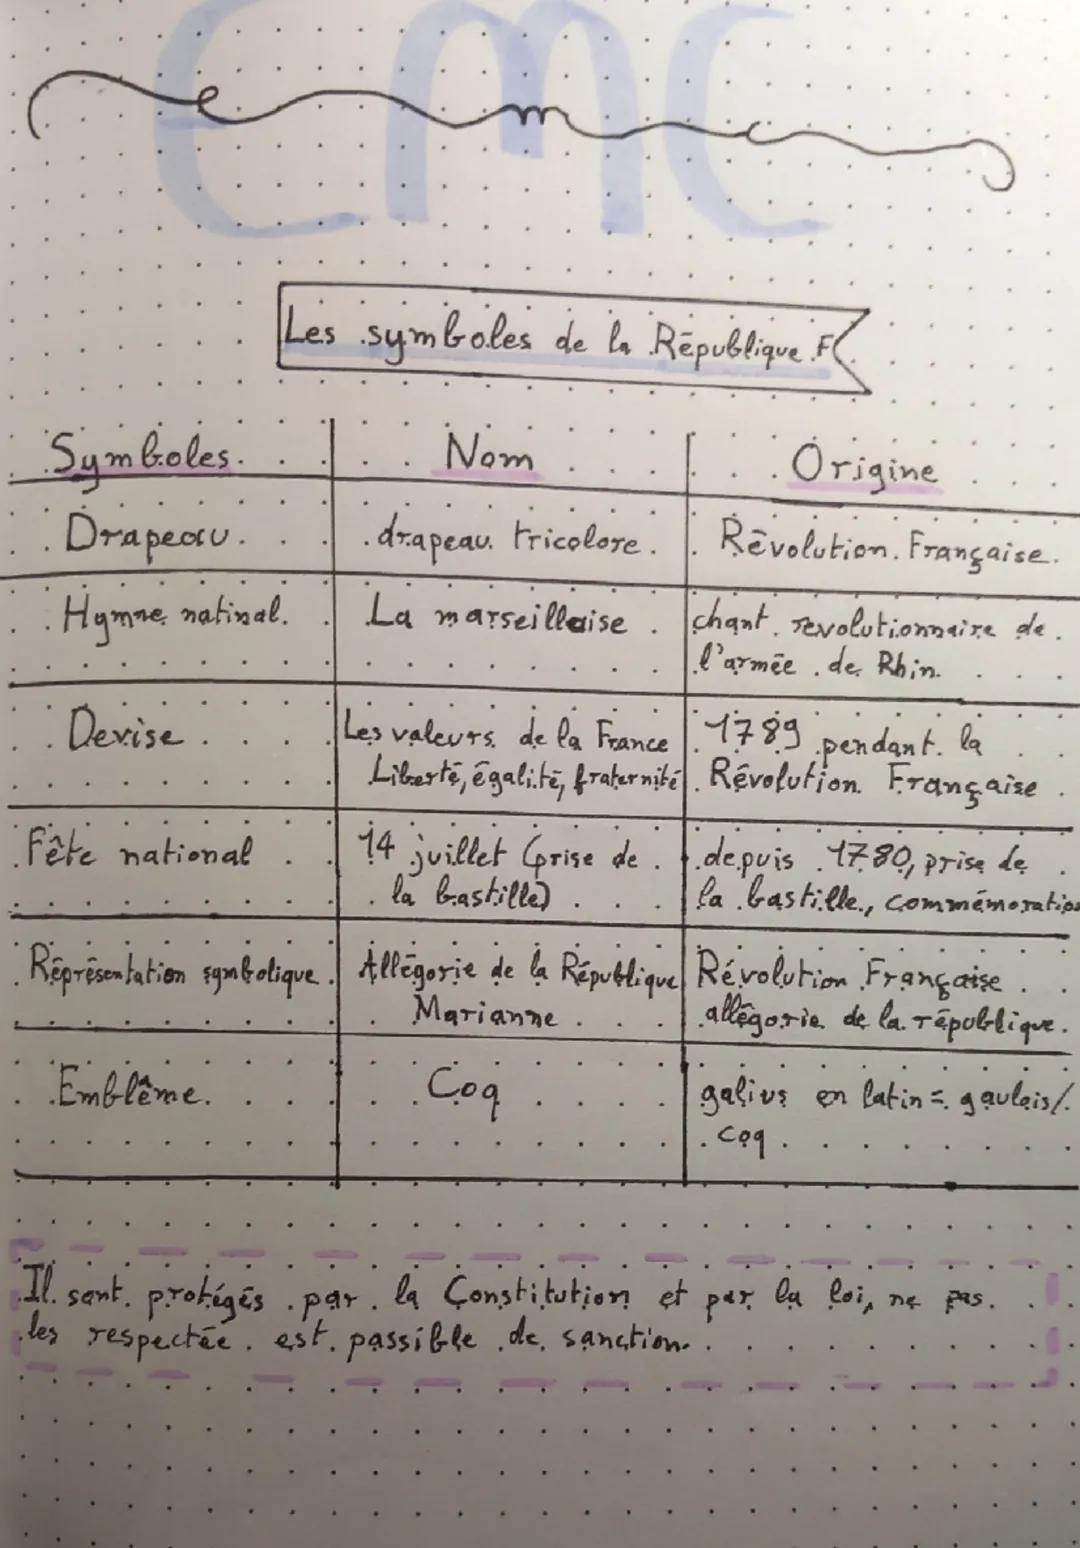 EMC
emc
Les symboles de la République F
Symboles Nom Origine
Drapeau drapeau tricolore Révolution Française
Hymne natinal La marseillaise chant revolutionnaire de
l'armée de Rhin
Devise Les valeurs de la France 1789 pendant la
Liberté, égalité, fraternité Révolution Française
Fête national 14 juillet (prise de depuis 1780, prise de
la bastille) la bastille, commémoration
Réprésentation symbolique Allégorie de la République Révolution Française
Marianne allégorie de la république
Emblême Coq galius en latin = gaulois/
coq
Il sont protégés par la Constitution et par la loi, ne pas
les respectée est passible de sanction.